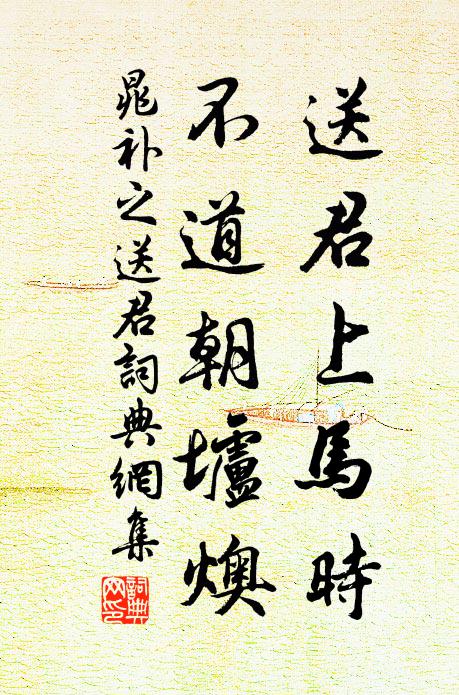 送君上馬時
不道朝壚燠
晁补之送君詞典網集
詞典网印